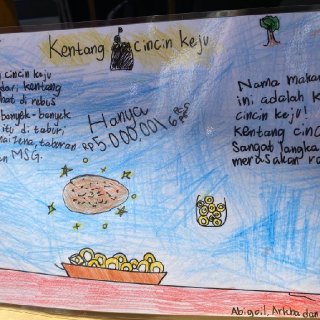 Kentang cincin keju
cincin keju
dari kentang
di rebus
banyak-banyak
itu di taburi
taburan
MSG.
Hanya
RP 5.000,00/6
Nama
ini, adalah
cincin keju!
kentang
Sangat langka
merasakan
Abigail, Arkha dan